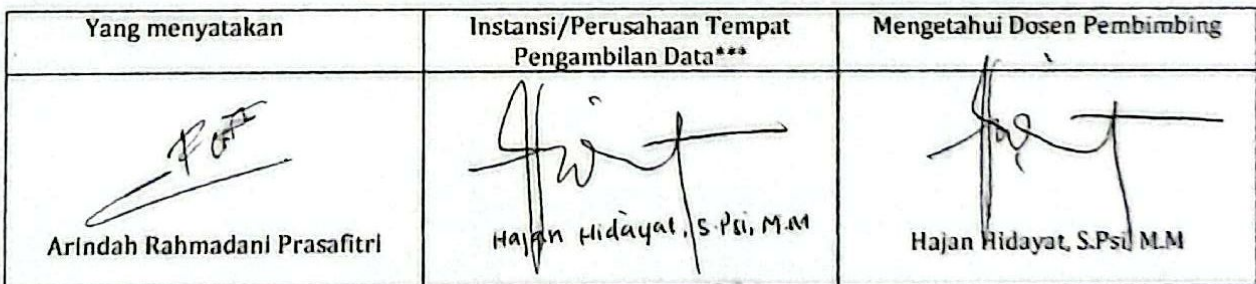 Yang menyatakan
Instansi/Perusahaan Tempat
Pengambilan Data***
Mengetahui Dosen Pembimbing
Arindah Rahmadani Prasafitri
Hajan Hidayat, S.Psi, M.M
Hajan Hidayat, S.Psi, M.M